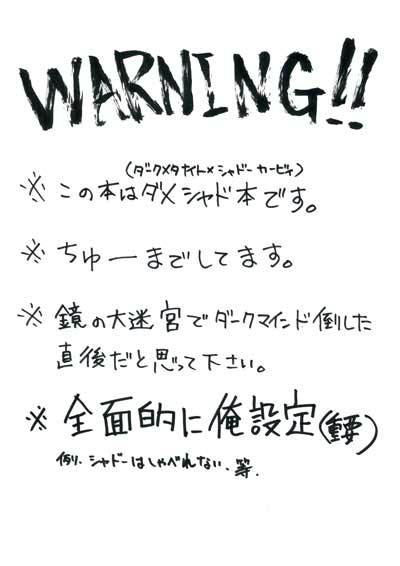 WARNING!!
(ダークメタナイト×シャドーカービィ)
※この本はダメシャド本です。
※ちゅーまでしてます。
※鏡の大迷宮でダークマインド倒した
直後だと思って下さい。
※全面的に俺設定(重要)
例.シャドーはしゃべれない.等.